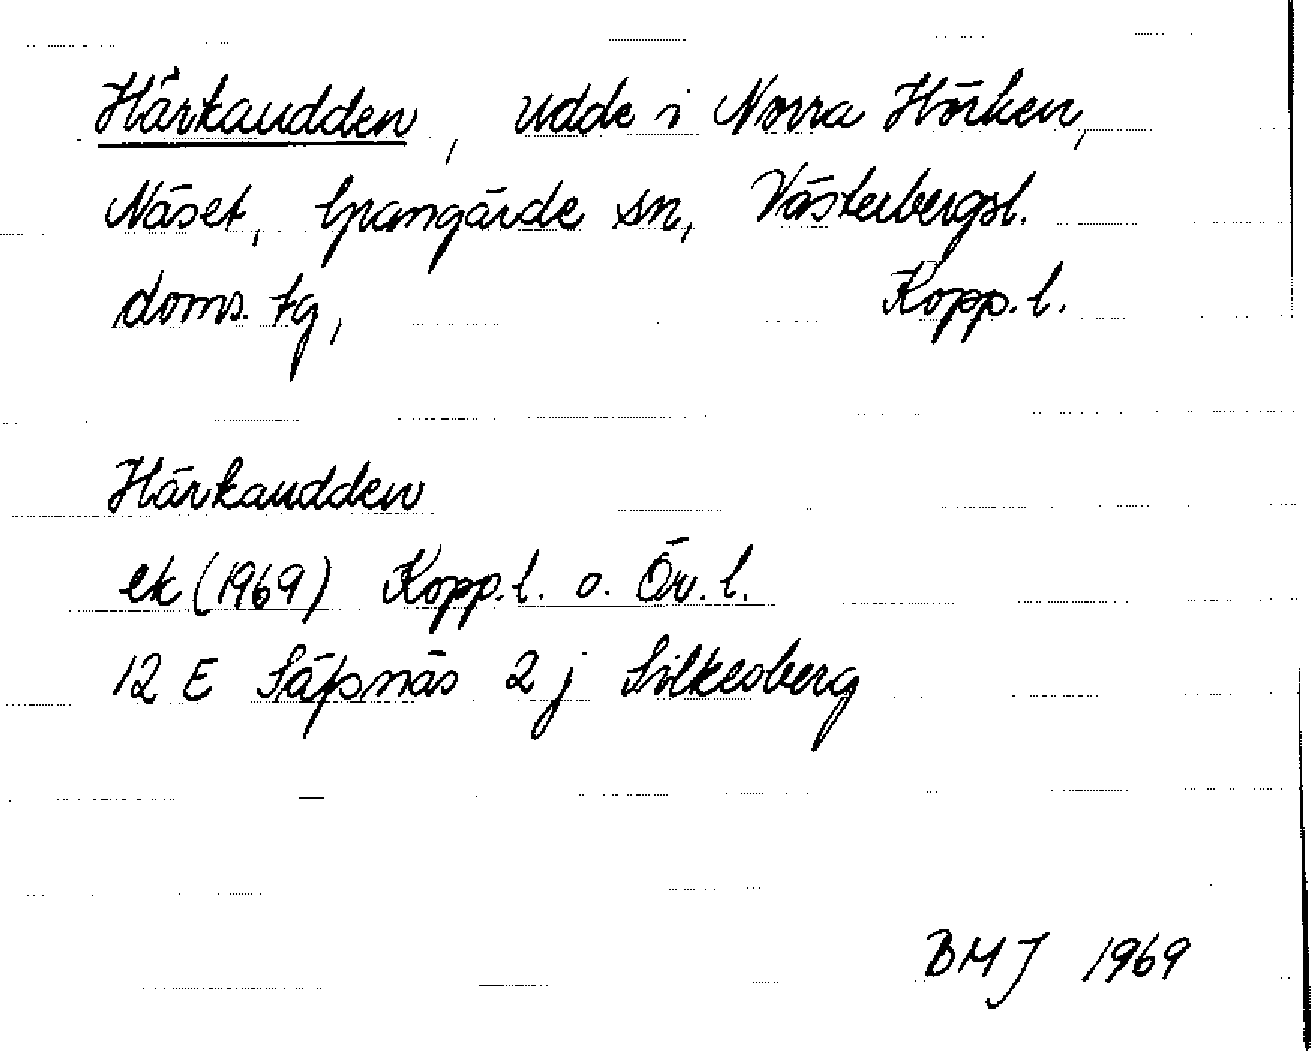 Härkaudden, udde i Norra Hörken,
Näset, Grangärde sn, Västerbergsl.
doms. tg, Kopp. l.
Härkaudden
ek (1969) Kopp. l. o. Ör. l.
12 E Säfsnäs 2 j Silkesberg
BMJ 1969